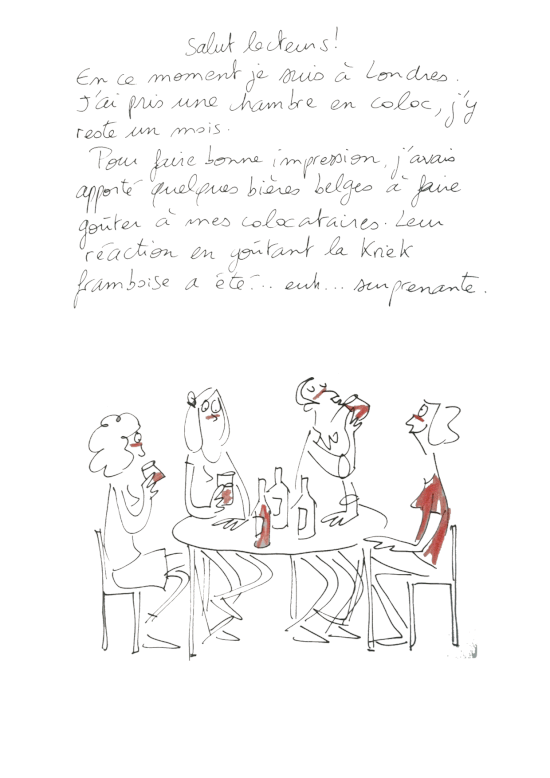 Salut lecteurs!
En ce moment je suis à Londres.
J'ai pris une chambre en coloc, j'y
reste un mois.
Pour faire bonne impression, j'avais
apporté quelques bières belges à faire
goûter à mes colocataires. Leur
réaction en goûtant la Kriek
framboise a été... euh... surprenante.